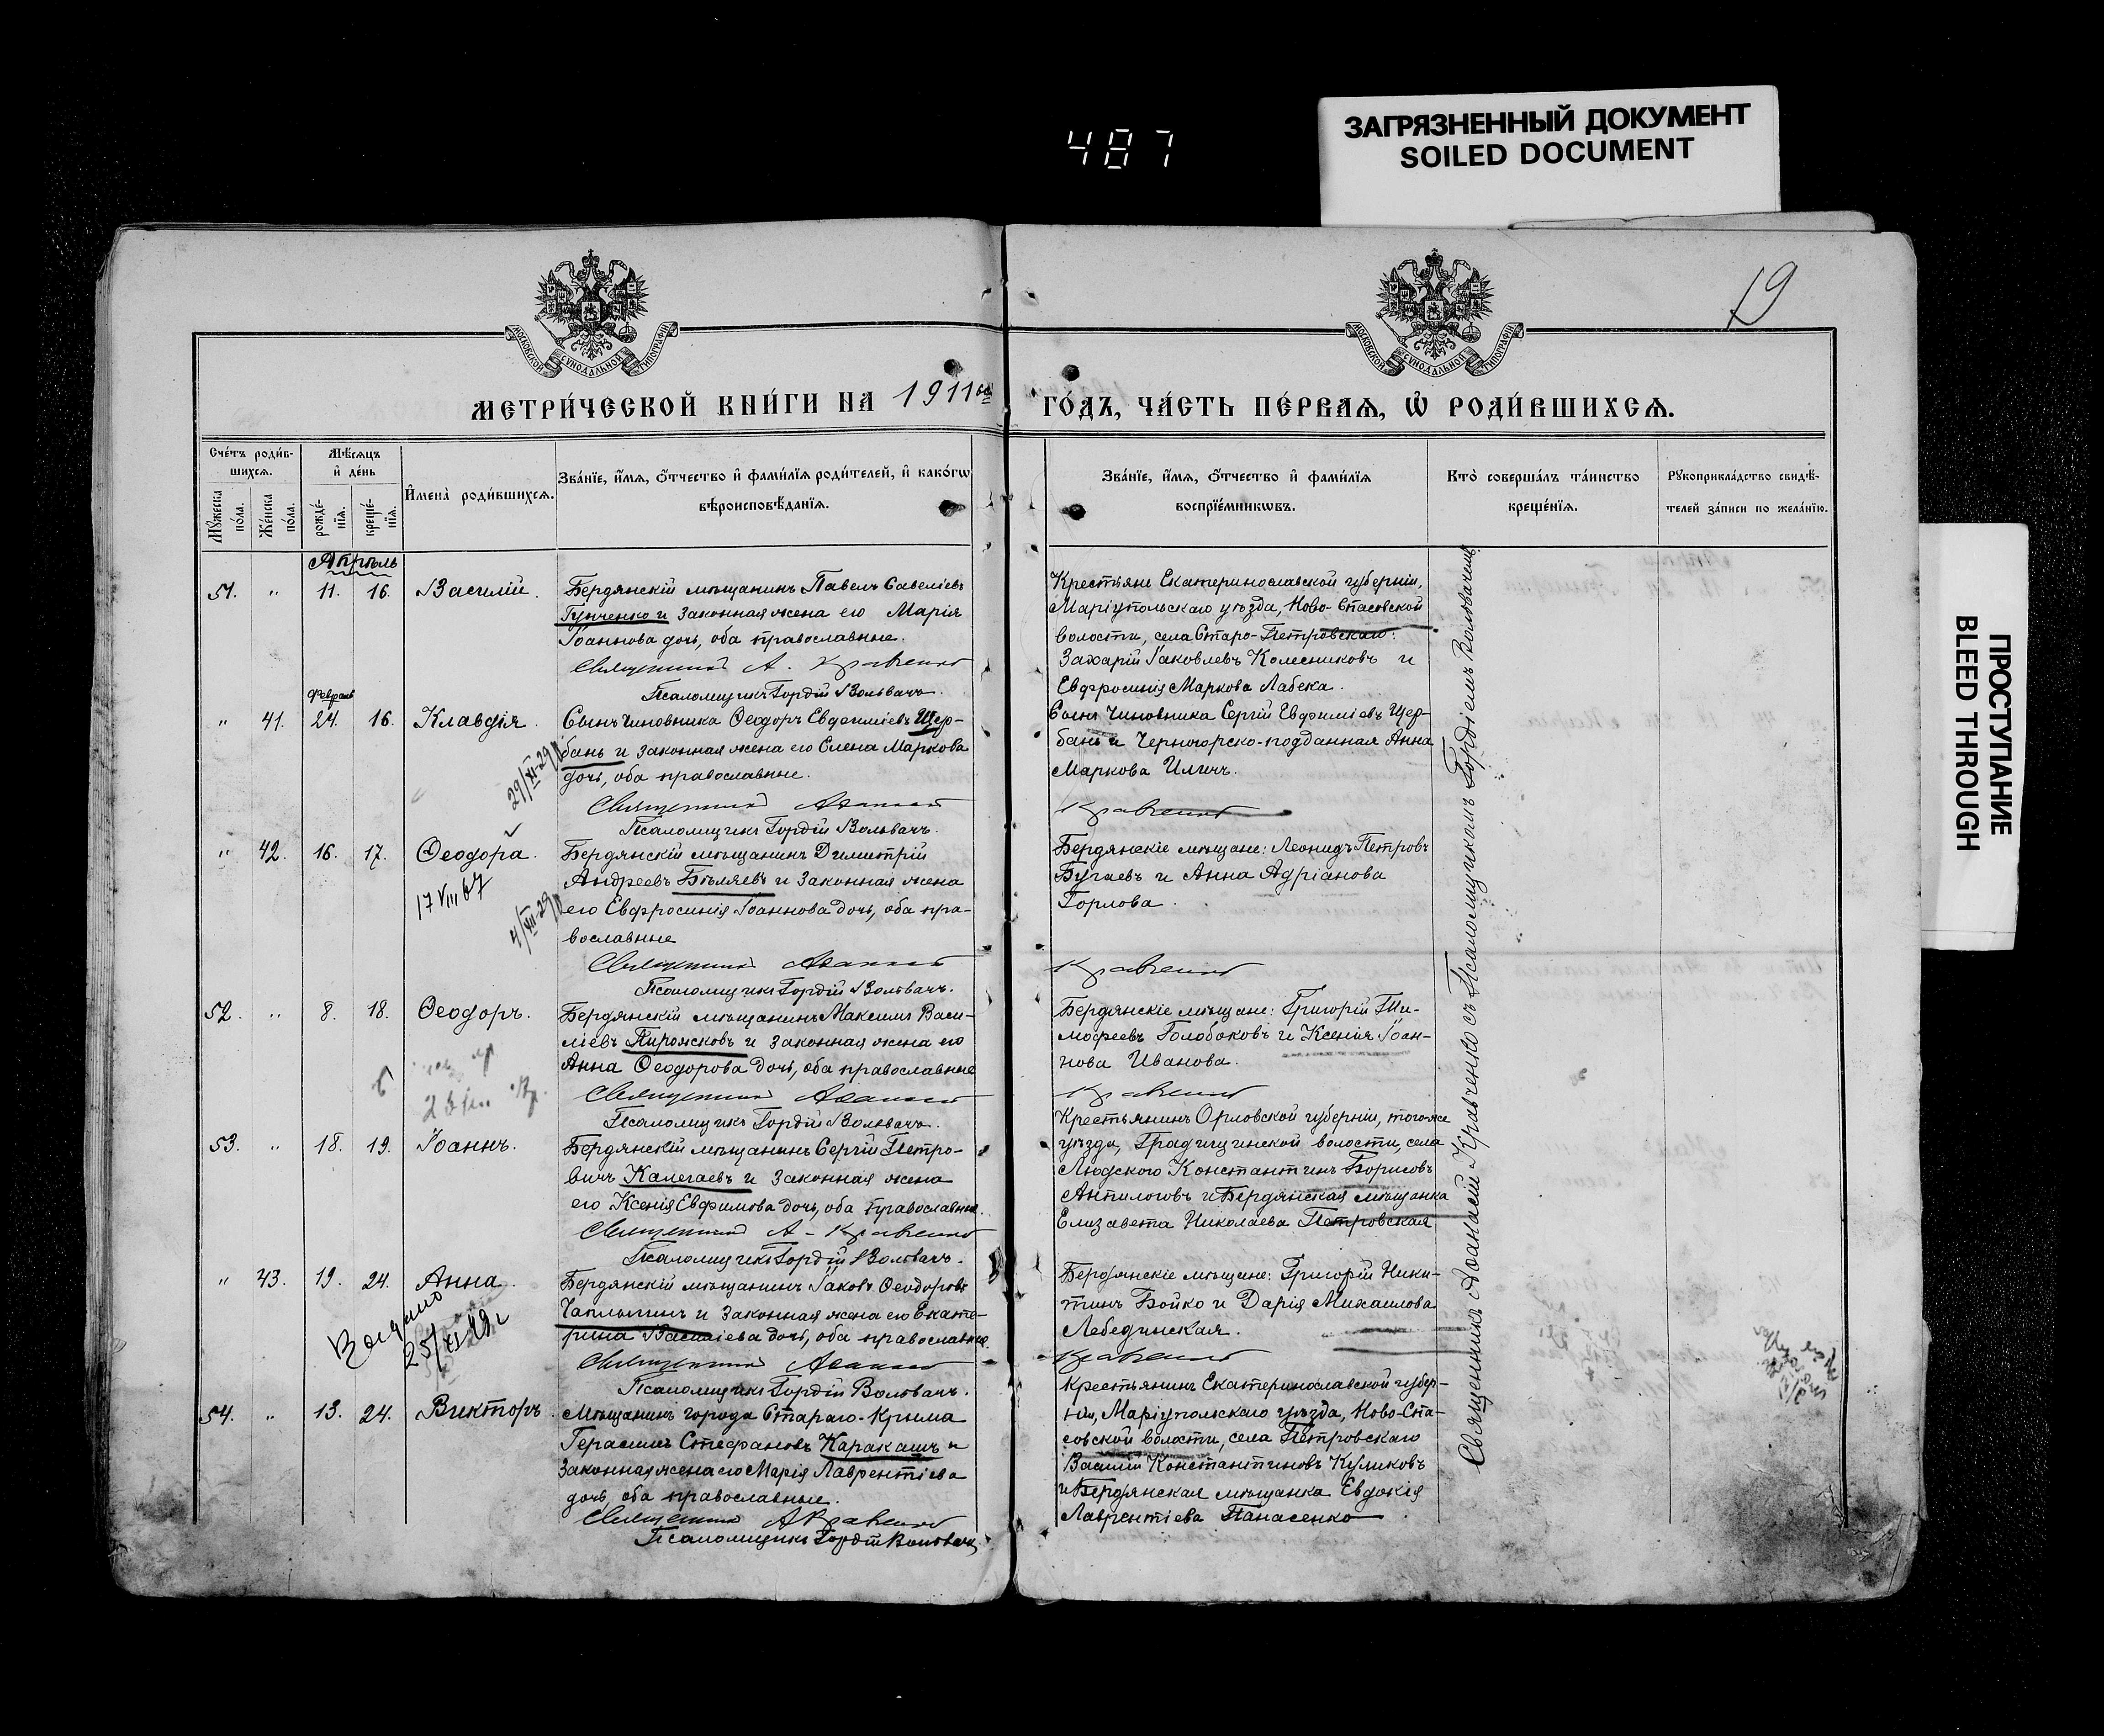 487
ЗАГРЯЗНЕННЫЙ ДОКУМЕНТ
SOILED DOCUMENT
ПРОСТУПАНИЕ
BLEED THROUGH
19
МОСКОВСКОЙ СѴНОДАЛЬНОЙ ТИПОГРАФІИ
МОСКОВСКОЙ СѴНОДАЛЬНОЙ ТИПОГРАФІИ
МЕТРИ́ЧЕСКОЙ КНИ́ГИ НА 1911ый
ГО́ДЪ, ЧА́СТЬ ПЕ́РВАЯ, Ѡ҆ РОДИ́ВШИХСЯ.
Сче́тъ роди́в-
шихся.
Мꙋжеска по́ла.
Же́нска по́ла.
Мѣ́сяцъ
и҆ де́нь
рожде́-
нїя.
креще́-
нїя.
И҆мена̀ роди́вшихся.
Зва́нїе, и҆́мя, ѻ҆́тчество и҆ фами́лїя роди́телей, и҆ како́гѡ
вѣроисповѣ́данїя.
Зва́нїе, и҆́мя, ѻ҆́тчество и҆ фами́лїя
воспрїе́мникѡвъ.
Кто̀ соверша́лъ та́инство
креще́нїя.
Рꙋкоприкла́дство свидѣ́-
телей за́писи по жела́нїю.
Апрѣль
51. " 11. 16. Василій.
Бердянскій мѣщанинъ Павелъ Савеліевъ
Гунченко и законная жена его Марія
Іоаннова дочь, оба православные.
Священникъ А. Кравченко
Псаломщикъ Гордій Воловачъ.
Крестьяне Екатеринославской губерніи,
Маріупольскаго уѣзда, Ново-Спасовской
волости, села Старо-Петровскаго:
Захарій Іаковлевъ Колесниковъ и
Евфросинія Маркова Лабека.
Февраль
" 41. 24. 16. Клавдія.
29/XI-29
Сынъ чиновника Ѳеодоръ Евфиміевъ Щер-
бань и законная жена его Елена Маркова
дочь, оба православные.
Священникъ Аѳанасій
Псаломщикъ Гордій Воловачъ.
Сынъ чиновника Сергій Евфиміевъ Щер-
бань и Черногорско-подданная Анна
Маркова Иличъ.
Кравченко
" 42. 16. 17. Ѳеодора.
17 VIII 67
4/XII-29
Бердянскій мѣщанинъ Димитрій
Андреевъ Бѣляевъ и законная жена
его Евфросинія Іоаннова дочь, оба пра-
вославные
Священникъ Аѳанасій
Псаломщикъ Гордій Воловачъ.
Бердянскіе мѣщане: Леонидъ Петровъ
Бугаевъ и Анна Адріанова
Горлова.
Кравченко
52. " 8. 18. Ѳеодоръ.
Бердянскій мѣщанинъ Максимъ Васи-
ліевъ Пирожковъ и законная жена его
Анна Ѳеодорова дочь, оба православные
Священникъ Аѳанасій
Псаломщикъ Гордій Воловачъ.
Бердянскіе мѣщане: Григорій Ти-
моѳеевъ Голобоковъ и Ксенія Іоан-
нова Иванова.
Кравченко
53. " 18. 19. Іоаннъ.
Бердянскій мѣщанинъ Сергій Петро-
вичъ Калегаевъ и законная жена
его Ксенія Евфимова дочь, оба православные.
Священникъ А. Кравченко
Псаломщикъ Гордій Воловачъ.
Крестьянинъ Орловской губерніи, тогоже
уѣзда, Градищинской волости, села
Людского Константинъ Борисовъ
Анпилоговъ и Бердянская мѣщанка
Елизавета Николаева Петровская
" 43. 19. 24. Анна.
25/XI 29г
Бердянскій мѣщанинъ Іаковъ Ѳеодоровъ
Чаплыгинъ и законная жена его Екате-
рина Василіева дочь, оба православные.
Священникъ Аѳанасій
Псаломщикъ Гордій Воловачъ.
Бердянскіе мѣщане: Григорій Ники-
тинъ Бойко и Дарія Михаилова
Лебединская.
Кравченко
54. " 13. 24. Викторъ.
Мѣщанинъ города Стараго-Крыма
Герасимъ Стефановъ Каракашъ и
законная жена его Марія Лаврентіева
дочь, оба православные.
Священникъ А Кравченко
Псаломщикъ Гордій Воловачъ
Крестьянинъ Екатеринославской губер-
ніи, Маріупольскаго уѣзда, Ново-Спа-
совской волости, села Петровскаго
Василій Константиновъ Куликовъ
и Бердянская мѣщанка Евдокія
Лаврентіева Панасенко
Священникъ Аѳанасій Кравченко съ Псаломщикомъ Гордіемъ Воловачемъ